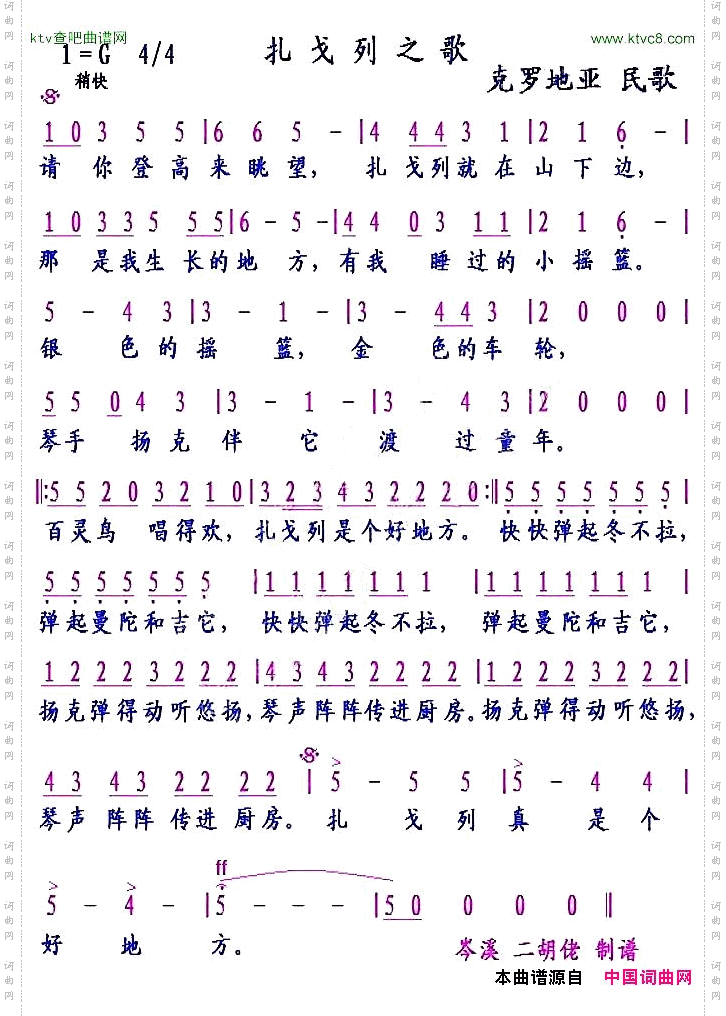 ktv查吧曲谱网
www.ktvc8.com
1=G 4/4 扎戈列之歌
稍快 克罗地亚 民歌
1 0 3 5 5 | 6 6 5 - | 4 4 4 3 1 | 2 1 6 - |
请 你登高来眺望， 扎戈列就在山下边，
1 0 3 3 5 5 5 | 6 - 5 - | 4 4 0 3 1 1 | 2 1 6 - |
那 是我生长的地 方，有我 睡过的小摇篮。
5 - 4 3 | 3 - 1 - | 3 - 4 4 3 | 2 0 0 0 |
银 色的摇 篮， 金 色的车轮，
5 5 0 4 3 | 3 - 1 - | 3 - 4 3 | 2 0 0 0 |
琴手 扬克伴 它 渡 过童年。
‖: 5 5 2 0 3 2 1 0 | 3 2 3 4 3 2 2 2 0 :‖ 5 5 5 5 5 5 5 |
百灵鸟 唱得欢，扎戈列是个好地方。快快弹起冬不拉，
5 5 5 5 5 5 5 | 1 1 1 1 1 1 1 | 1 1 1 1 1 1 1 |
弹起曼陀和吉它， 快快弹起冬不拉， 弹起曼陀和吉它，
1 2 2 2 3 2 2 2 | 4 3 4 3 2 2 2 2 | 1 2 2 2 3 2 2 2 |
扬克弹得动听悠扬，琴声阵阵传进厨房。扬克弹得动听悠扬，
4 3 4 3 2 2 2 2 | 5 - 5 5 | 5 - 4 4 |
琴声阵阵传进厨房。扎 戈列真 是个
ff
5 - 4 - | 5 - - - | 5 0 0 0 0 ‖
好 地 方。 岑溪 二胡佬 制谱
本曲谱源自 中国词曲网
词曲网
词曲网
词曲网
词曲网
词曲网
词曲网
词曲网
词曲网
词曲网
词曲网
词曲网
词曲网